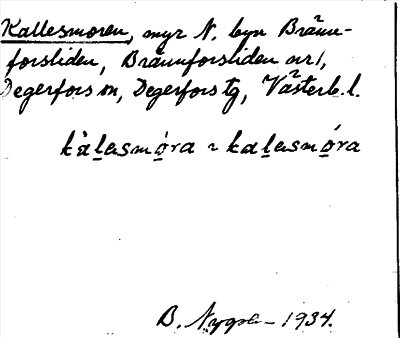 Kallesmoren, myr N. byn Bränn-
forsliden, Brännforsliden nr 1,
Degerfors sn, Degerfors tg, Västerb. l.
kàlasmóra ~ kalasmóra
B. 1934.